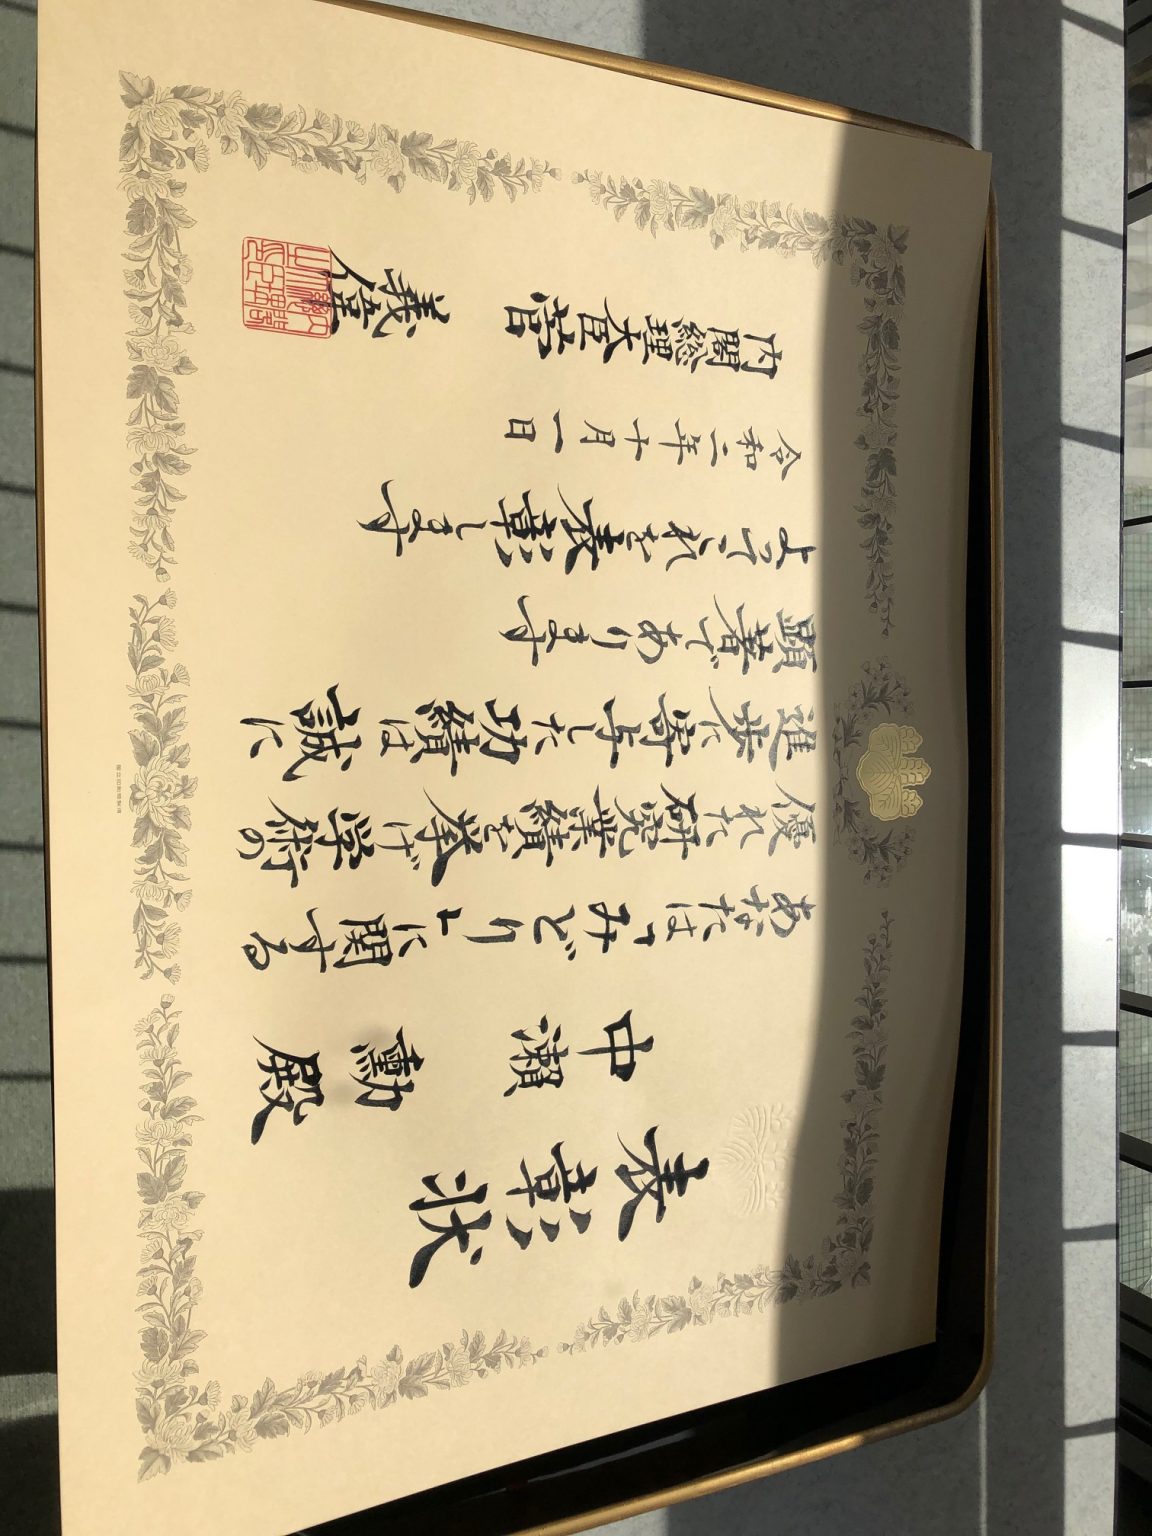 表彰状
中瀬 勳 殿
あなたはみどりに関する
優れた研究業績を挙げ学術の
進歩に寄与した功績は誠に
顕著であります
よってこれを表彰します
令和二年十月一日
内閣総理大臣 菅 義偉